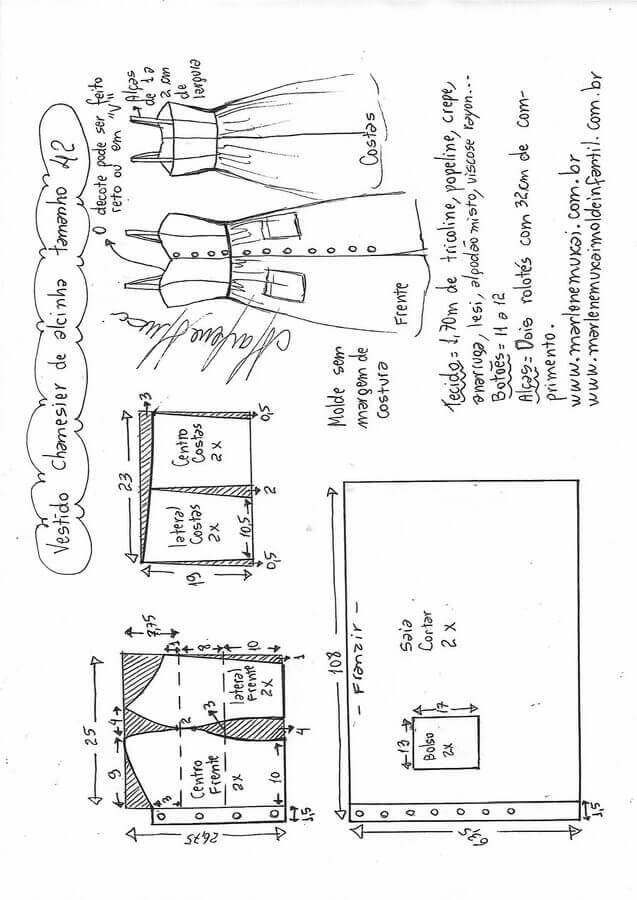 Vestido Chamesier de alcinha tamanho 42
O decote pode ser feito
reto ou em "V"
Alças
de 1 a
2 cm
de
largura
Costas
Frente
Marlene Mukai
23
3
Centro
Costas
2 x
lateral
Costas
2 x
19
10,5
0,5
2
0,5
Molde sem
margem de
costura
7,75
25
4
9
1
8
10
2
3
3
lateral
Frente
2x
Centro
Frente
2x
10
4
1
26,75
1,5
108
- Franzir -
Saia
Cortar
2 x
13
17
Bolso
2x
1,5
Tecido = 1,70m de tricoline, popeline, crepe,
anarruga, lesi, algodão misto, viscose rayon...
Botões = 11 a 12
Alças = Dois rolotês com 32cm de com-
primento.
www.marlenemukai.com.br
www.marlenemukaimoldeinfantil.com.br